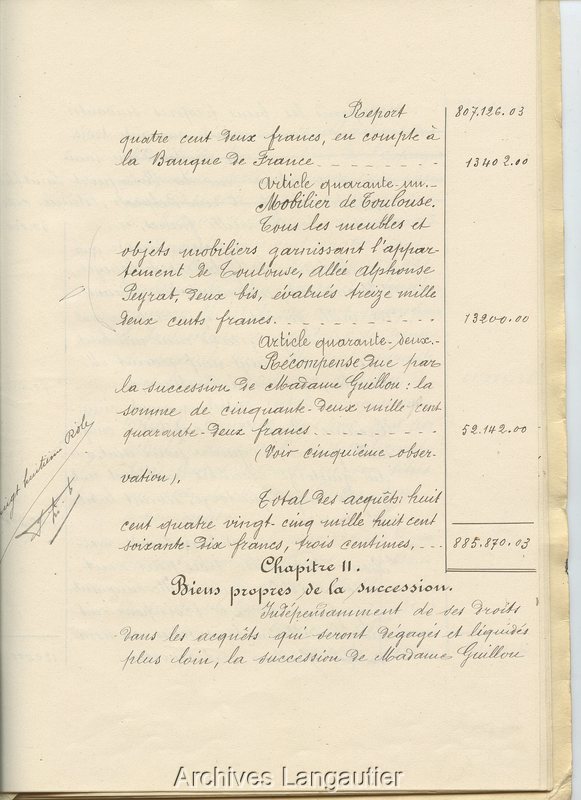 Report 807.126.03
quatre cent deux francs, en compte à
la Banque de France - - - - - 13402.00
Article quarante-un.-
Mobilier de Toulouse.
Tous les meubles et
objets mobiliers garnissant l'appar-
tement de Toulouse, Allée Alphonse
Peyrat, deux bis, évalués treize mille
deux cents francs. - - - - - - - 13200.00
Article quarante-deux.-
Récompense due par
la succession de Madame Guillou: la
somme de cinquante-deux mille cent
quarante-deux francs - - - - - 52.142.00
(Voir cinquième obser-
vation).
Total des acquêts: huit
cent quatre vingt-cinq mille huit cent
soixante-dix francs, trois centimes, - - - 885.870.03
Chapitre II.
Biens propres de la succession.
Indépendamment de ses droits
dans les acquêts qui seront dégagés et liquidés
plus loin, la succession de Madame Guillou
huitième Rôle
Archives Langautier